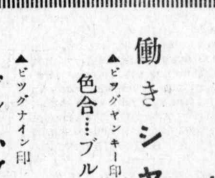 働きシャ
▲ビツグヤンキー印
色合……ブル
▲ビツグナイン印